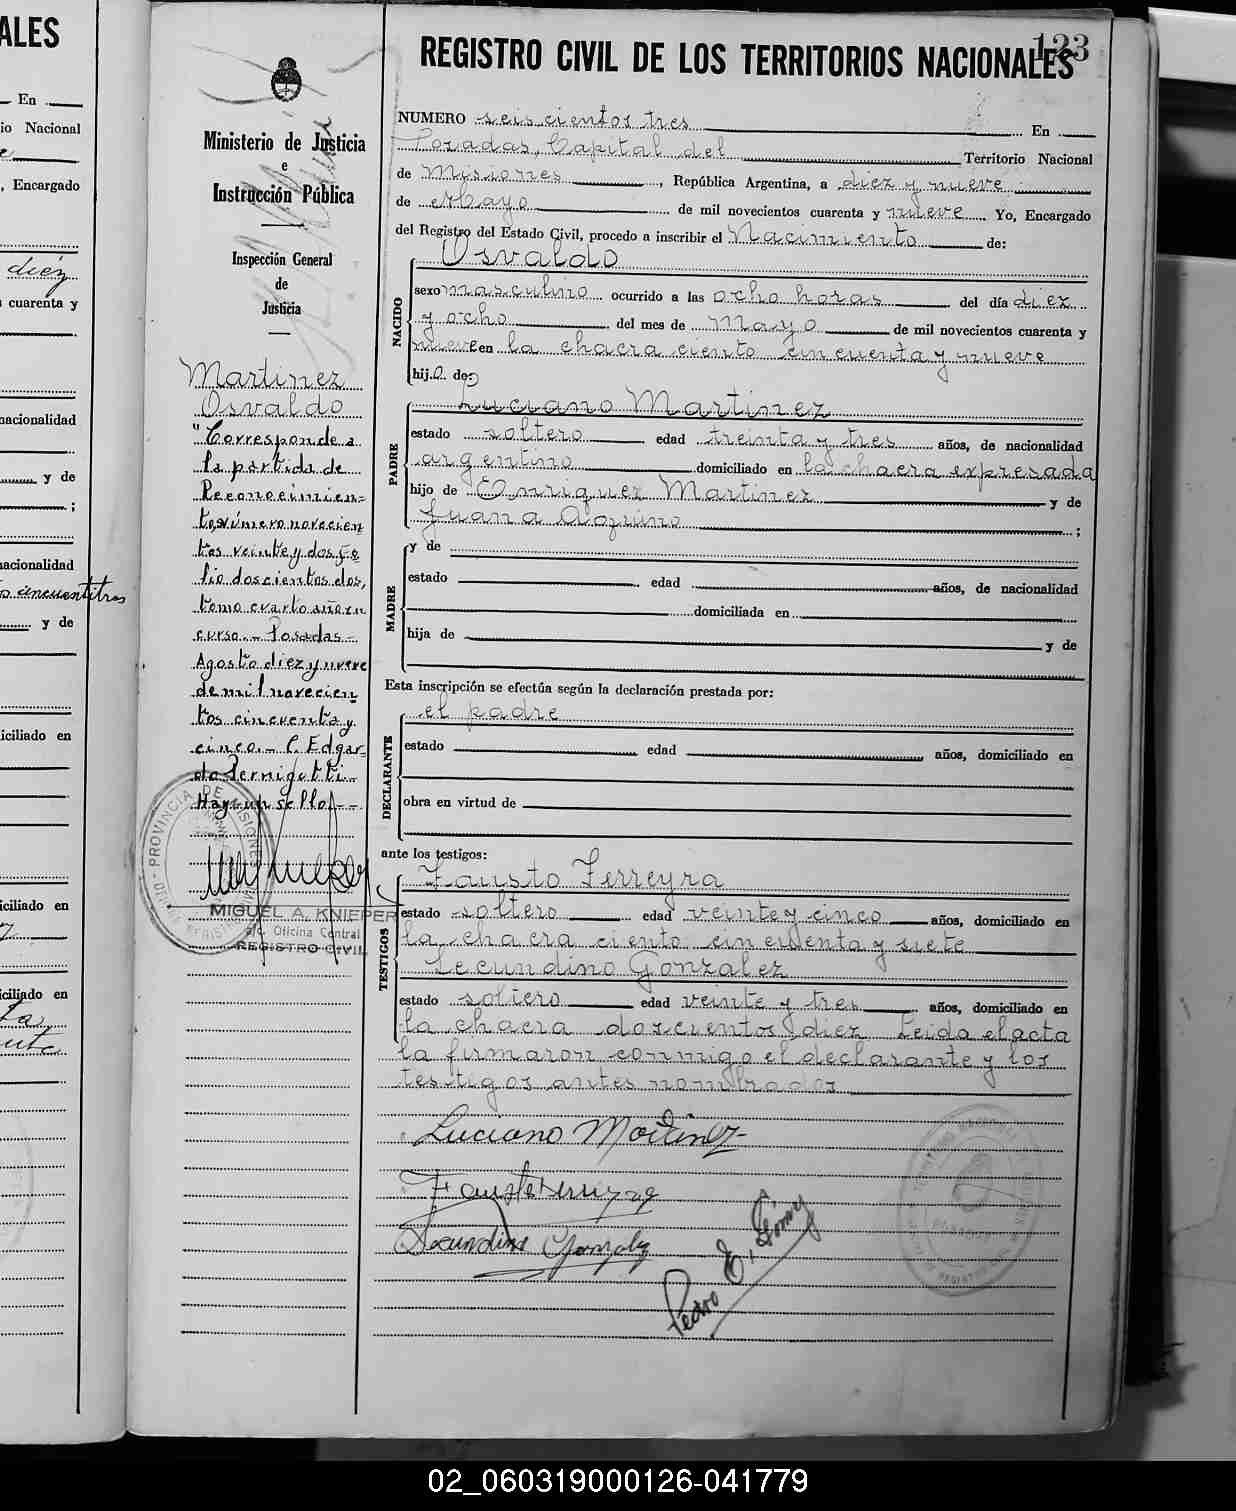 ALES
En
io Nacional
, Encargado
diéz
cuarenta y
nacionalidad
y de
;
nacionalidad
cincuentitres
y de
iciliado en
iciliado en
iciliado en
123
REGISTRO CIVIL DE LOS TERRITORIOS NACIONALES
Ministerio de Justicia
e
Instrucción Pública
Inspección General
de
Justicia
Martinez
Osvaldo
"Corresponde a
la partida de
Reconocimien-
to número novecien
tos veinte y dos, fo
lio doscientos dos,
tomo cuarto año en
curso.- Posadas-
Agosto diez y nueve
de mil novecien
tos cincuenta y
cinco.- C. Edgar-
do Pernigotti-
Hay un sello".--
PROVINCIA DE MISIONES
MIGUEL A. KNIEPER
a/c. Oficina Central
REGISTRO CIVIL
NUMERO seiscientos tres En
Posadas, Capital del Territorio Nacional
de Misiones, República Argentina, a diez y nueve
de Mayo de mil novecientos cuarenta y nueve. Yo, Encargado
del Registro del Estado Civil, procedo a inscribir el Nacimiento de:
NACIDO
Osvaldo
sexo masculino ocurrido a las ocho horas del día diez
y ocho del mes de mayo de mil novecientos cuarenta y
nueve en la chacra ciento cincuenta y nueve
hij.o. de:
PADRE
Luciano Martinez
estado soltero edad treinta y tres años, de nacionalidad
argentino domiciliado en la chacra expresada
hijo de Enriquez Martinez y de
Juana Aquino ;
MADRE
y de
estado edad años, de nacionalidad
domiciliada en
hija de y de
Esta inscripción se efectúa según la declaración prestada por:
DECLARANTE
el padre
estado edad años, domiciliado en
obra en virtud de
ante los testigos:
TESTIGOS
Fausto Ferreyra
estado soltero edad veinte y cinco años, domiciliado en
la chacra ciento cincuenta y siete
Secundino Gonzalez
estado soltero edad veinte y tres años, domiciliado en
la chacra doscientos diez Leida el acta
la firmaron conmigo el declarante y los
testigos antes nombrados
Luciano Martinez
Fausto Ferreyra
Secundino Gonzalez
Pedro E. Gómez
02_060319000126-041779